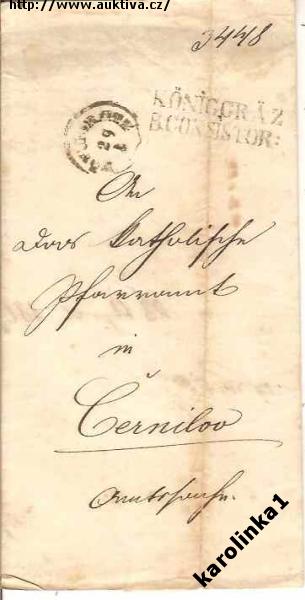 http://www.auktiva.cz/
3448
KÖNIGGRÄZ
B:CONSISTOR:
29
An
das katholische
Pfarramt
in
Černilov
Amtssache.
karolinka1